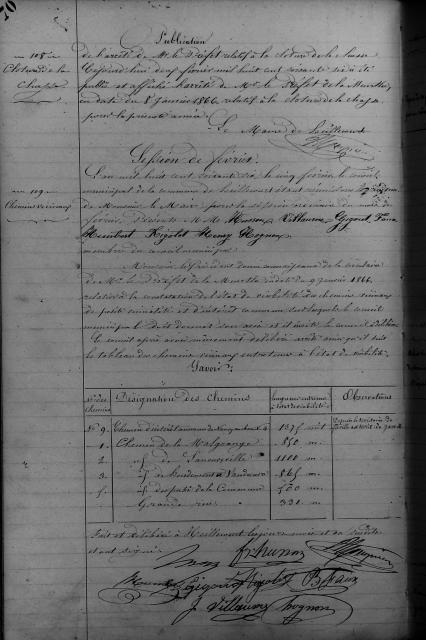 Publication
de l'arrêté de Mr le Préfet relatif à la cloture de la chasse
Cejourd'hui dix février mil huit cent soixante six a été
publié et affiché l'arrêté de Mr le Préfet de la Meurthe
en date du 8 Janvier 1866 relatif à la cloture de la chasse
pour la présente année
Le Maire de Heillecourt
no 108
Cloture de la
Chasse
Session de février.
L'an mil huit cent soixante six le cinq février le conseil
municipal de la commune de Heillecourt étant réuni sous la
de Monsieur le Maire pour la session ordinaire du mois de
février. Présents M.M. Husson Villaume Gigout
Humbert Rigolet Henry Hognon
membres du conseil municipal
no 109
Chemins vicinaux
Monsieur le Président donne connaissance de la circulaire
de Mr le Préfet de la Meurthe en date du 9 janvier 1866
relative à la constatation de l'état de viabilité des chemins vicinaux
de petite vicinalité et d'intérêt commun sur laquelle le conseil
municipal doit donner son avis et il invite le conseil à délibérer
Le conseil après avoir mûrement délibéré ainsi qu'il suit
le tableau des chemins vicinaux entretenus à l'état de viabilité.
Savoir:
Nos des chemins Désignation des Chemins longueur entretenue à l'état de viabilité Observations
No 9. Chemin d'intérêt commun de Nancy
1. Chemin de la Malgrange 850 m.
2. id de Laneuveville 1100 m.
3. id de Houdemont à Vandœuvre
id de la Commune
Grande rue 330 m.
Fait et délibéré à Heillecourt les jour, mois et an susdits
et ont signé.
Husson
Gigout Rigolet
J. Villaume Hognon